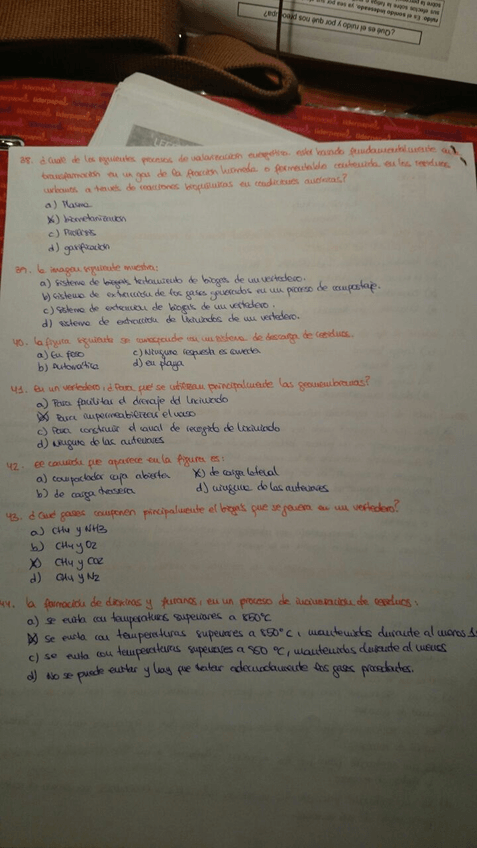 ¿Qué es el ruido y por qué nos preocupa?
38. ¿Cuál de los siguientes procesos de valorización energética está basado fundamentalmente en la
transformación en un gas de la fracción húmeda o fermentable contenida en los residuos
urbanos a través de reacciones bioquímicas en condiciones anóxicas?
a) Plasma
b) biometanización
c) Pirólisis
d) gasificación
39. la imagen siguiente muestra:
a) Sistema de biogás tratamiento de biogás de un vertedero.
b) sistema de extracción de los gases generados en un proceso de compostaje.
c) Sistema de extracción de biogás de un vertedero.
d) sistema de extracción de lixiviados de un vertedero.
40. la figura siguiente se corresponde con un sistema de descarga de residuos.
a) En foso c) Ninguna respuesta es correcta
b) Automática d) en playa
41. En un vertedero, ¿Para que se utilizan principalmente las geomembranas?
a) Para facilitar el drenaje del lixiviado
b) Para impermeabilizar el vaso
c) Para construir el canal de recogida de lixiviado
d) Ninguna de las anteriores
42. el camión que aparece en la figura es:
a) compactador caja abierta c) de carga lateral
b) de carga trasera d) ninguna de las anteriores
43. ¿Qué gases componen principalmente el biogás que se genera en un vertedero?
a) CH4 y NH3
b) CH4 y O2
c) CH4 y CO2
d) CH4 y N2
44. la formación de dioxinas y furanos, en un proceso de incineración de residuos:
a) se evita con temperaturas superiores a 850°C
b) Se evita con temperaturas superiores a 850°C, mantenidos durante al menos
c) se evita con temperaturas superiores a 850 °C, mantenidos durante al menos
d) No se puede evitar y hay que tratar adecuadamente los gases procedentes.